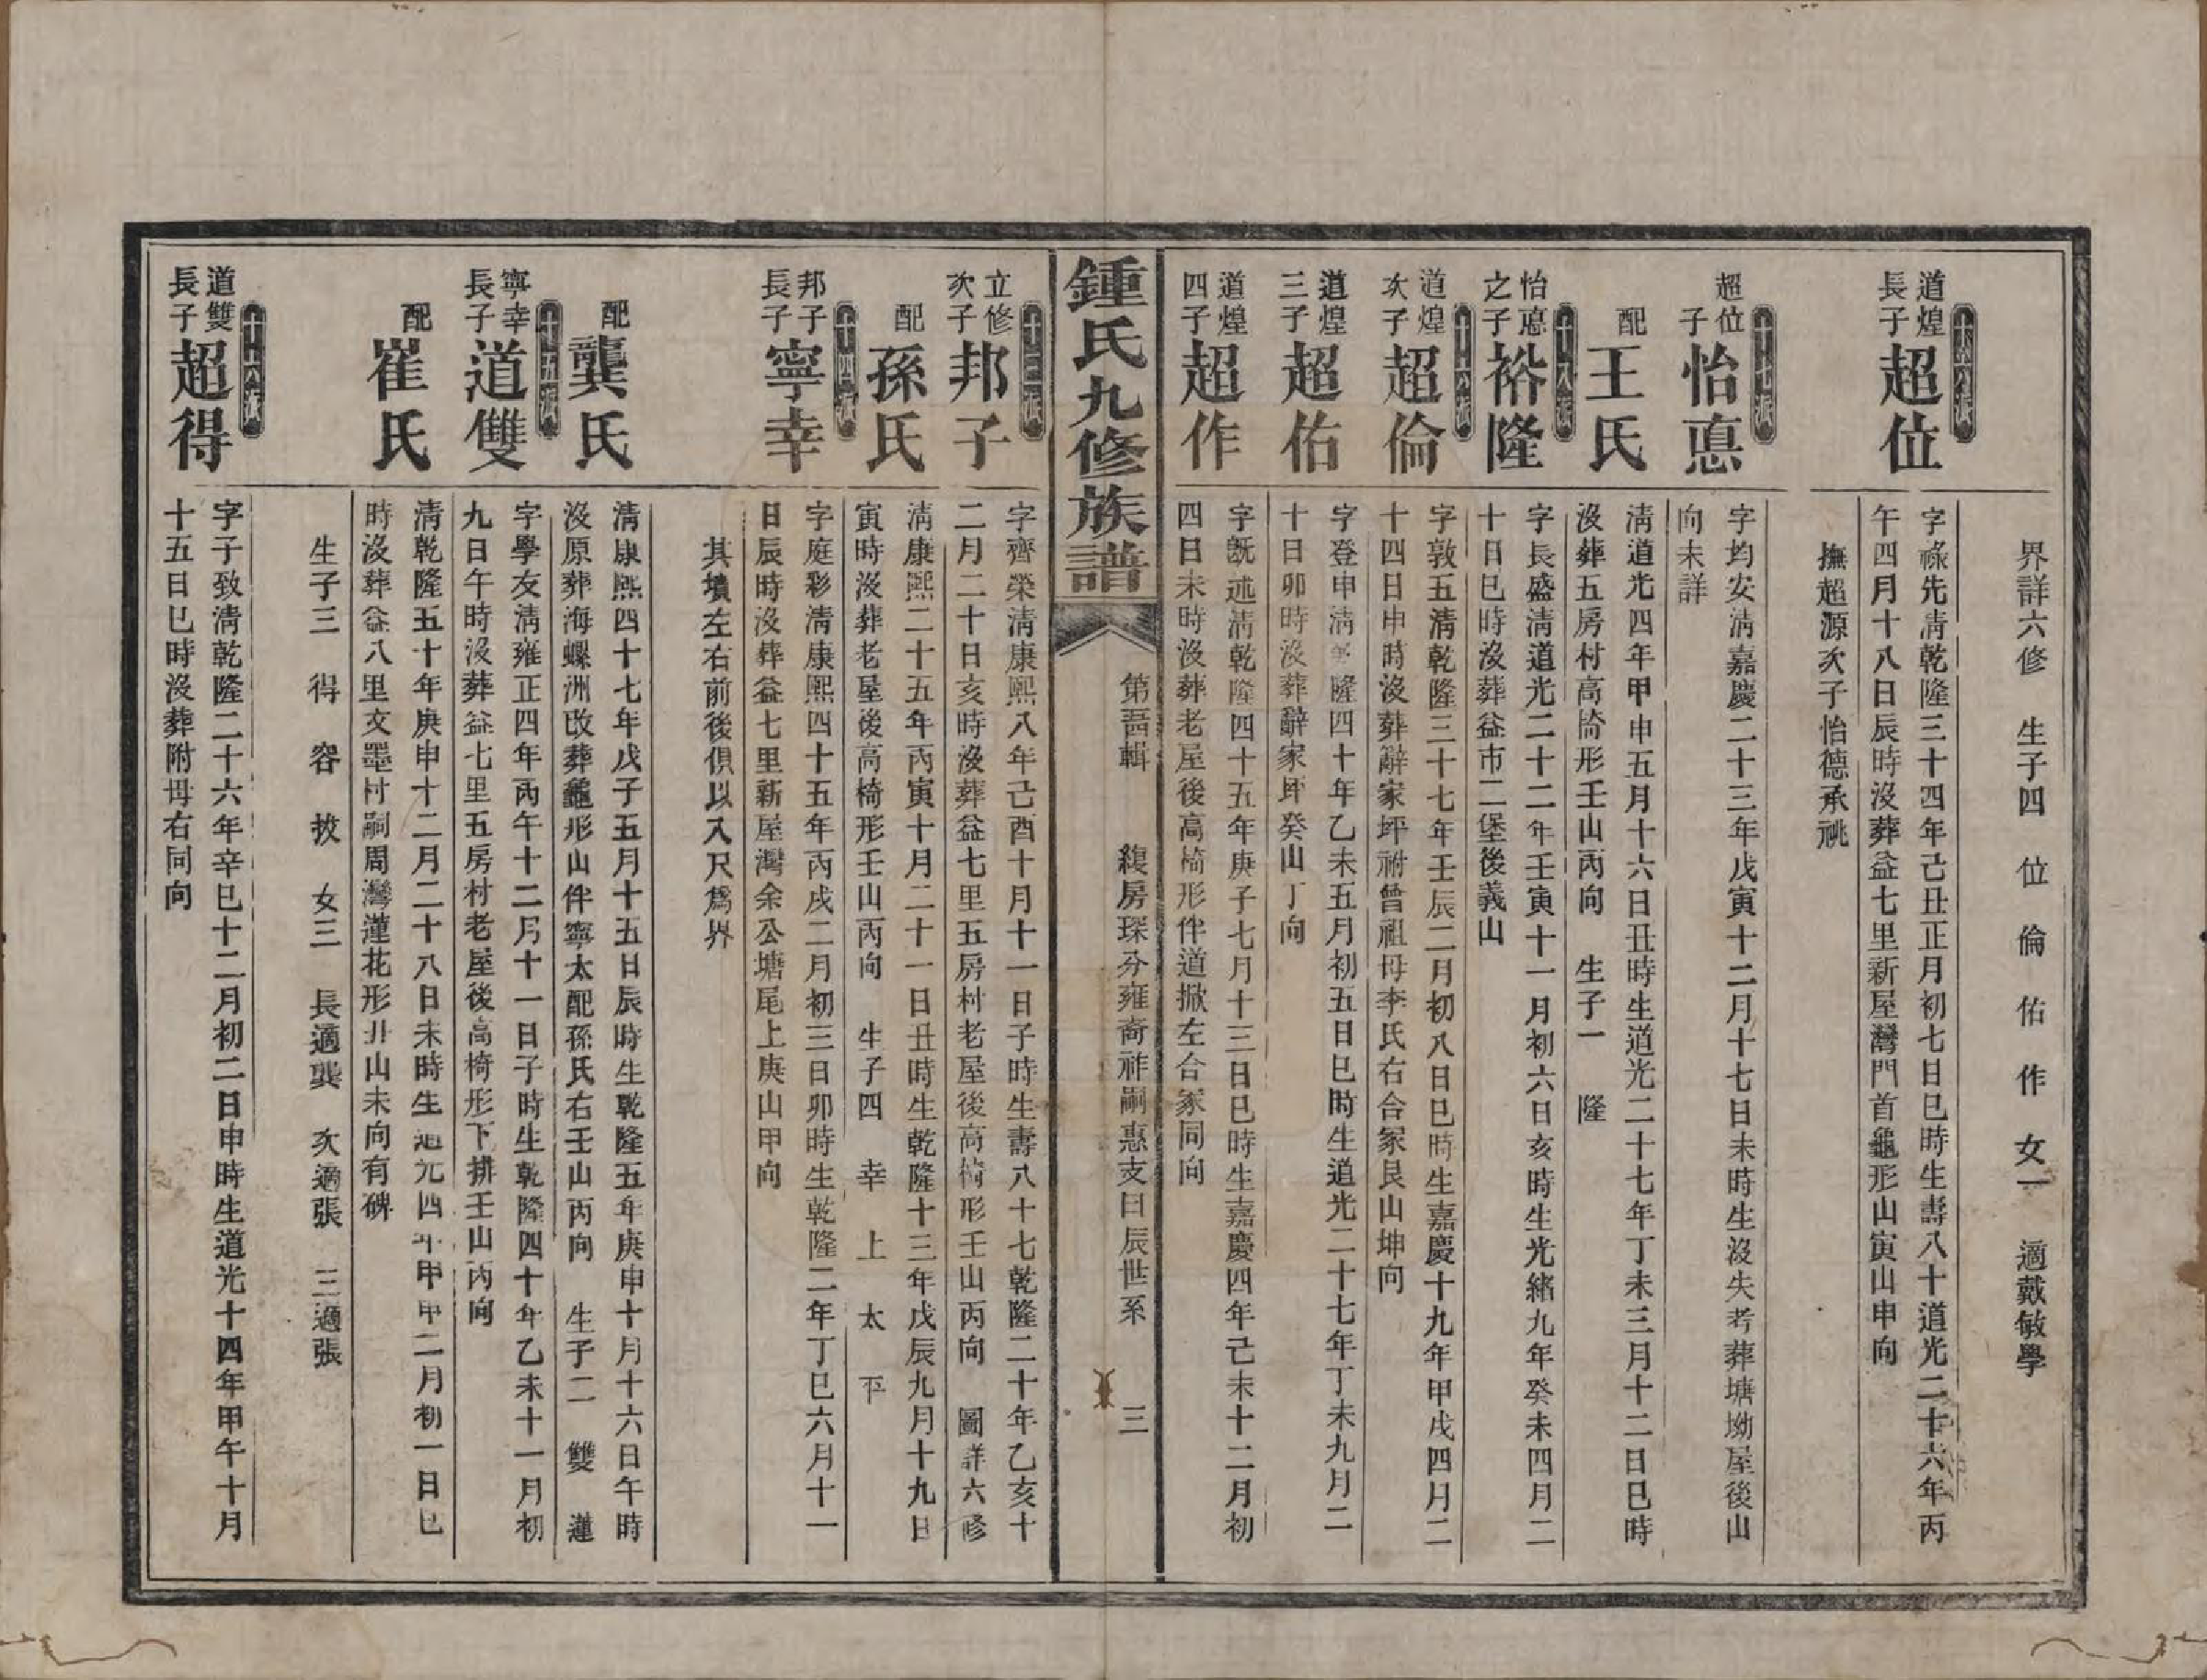 界詳六修　生子四　位　倫　佑　作　女一　適戴敏學
十六派
道煌
長子
超位
字祿先淸乾隆三十四年己丑正月初七日巳時生壽八十道光二十六年丙
午四月十八日辰時沒葬益七里新屋灣門首龜形山寅山申向
撫超源次子怡德承祧
十七派
超位
子
怡惪
字均安淸嘉慶二十三年戊寅十二月十七日未時生沒失考葬塘坳屋後山
向未詳
配
王氏
淸道光四年甲申五月十六日丑時生道光二十七年丁未三月十二日巳時
沒葬五房村高椅形壬山丙向　生子一　隆
十八派
怡惪
之子
裕隆
字長盛淸道光二十二年壬寅十一月初六日亥時生光緒九年癸未四月二
十日巳時沒葬益市二堡後義山
十六派
道煌
次子
超倫
字敦五淸乾隆三十七年壬辰二月初八日巳時生嘉慶十九年甲戌四月二
十四日申時沒葬辭家坪祔曾祖母李氏右合冢艮山坤向
道煌
三子
超佑
字登申淸乾隆四十年乙未五月初五日巳時生道光二十七年丁未九月二
十日卯時沒葬辭家坪癸山丁向
道煌
四子
超作
字旣述淸乾隆四十五年庚子七月十三日巳時生嘉慶四年己未十二月初
四日未時沒葬老屋後高椅形伴道掀左合冢同向
鍾氏九修族譜
第吾輯　緮房琛分雍裔祥嗣惠支日辰世系　三
十三派
立修
次子
邦子
字齊榮淸康熙八年己酉十月十一日子時生壽八十七乾隆二十年乙亥十
二月二十日亥時沒葬益七里五房村老屋後高椅形壬山丙向　圖詳六修
配
孫氏
淸康熙二十五年丙寅十月二十一日丑時生乾隆十三年戊辰九月十九日
寅時沒葬老屋後高椅形壬山丙向　生子四　幸　上　太　平
十四派
邦子
長子
寧幸
字庭彩淸康熙四十五年丙戌二月初三日卯時生乾隆二年丁巳六月十一
日辰時沒葬益七里新屋灣余公塘尾上庚山甲向
其墳左右前後俱以入尺爲界
配
龔氏
淸康熙四十七年戊子五月十五日辰時生乾隆五年庚申十月十六日午時
沒原葬海螺洲改葬龜形山伴寧太配孫氏右壬山丙向　生子二　雙　蓮
十五派
寧幸
長子
道雙
字學友淸雍正四年丙午十二月十一日子時生乾隆四十年乙未十一月初
九日午時沒葬益七里五房村老屋後高椅形下排壬山丙向
配
崔氏
淸乾隆五十年庚申十二月二十八日未時生道光四年甲申二月初一日巳
時沒葬益八里交墨村嗣周灣蓮花形丑山未向有碑
生子三　得　容　教　女三　長適龔　次適張　三適張
十六派
道雙
長子
超得
字子致淸乾隆二十六年辛巳十二月初二日申時生道光十四年甲午十月
十五日巳時沒葬附母右同向